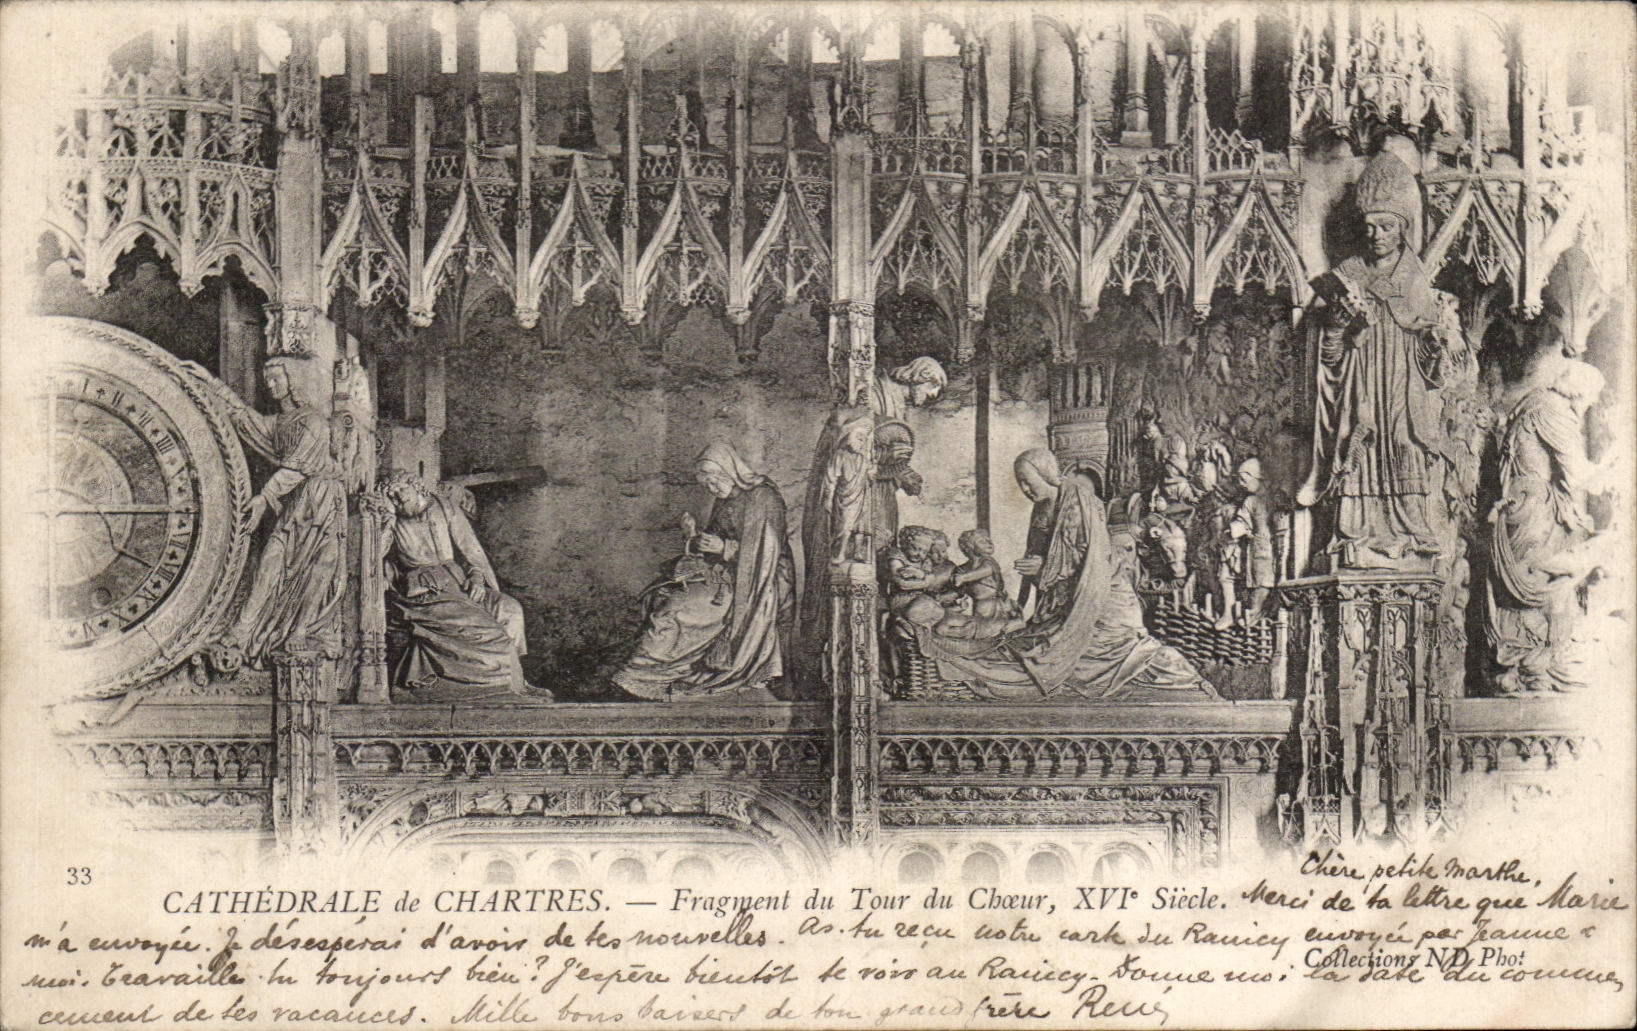 33
CATHÉDRALE de CHARTRES. — Fragment du Tour du Chœur, XVIe Siècle.
Collections ND Phot
Chère petite Marthe,
Merci de ta lettre que Marie
m'a envoyée. Je désespérai d'avoir de tes nouvelles. As-tu reçu notre carte du Raincy envoyée par Jeanne &
moi. Travailles-tu toujours bien? J'espère bientôt te voir au Raincy. Donne moi la date du commen
cement de tes vacances. Mille bons baisers de ton grand frère René